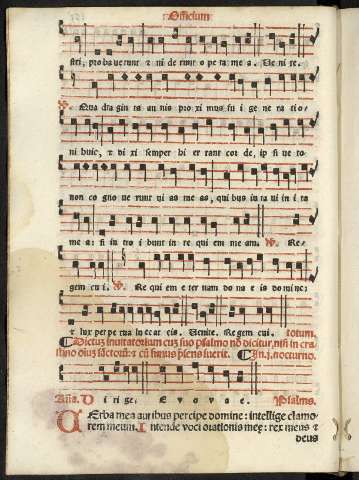 Officium
stri, probauerunt τ uiderunt opera mea. Uenite.
Quadraginta annis proximus fui generatio-
ni huic, τ dixi semper hi errant corde, ipsi ve ro
non cognouerunt vias meas, quibus iuraui in ira
mea: si introibunt in requiem meam. Re-
gem cui. Requiem eternam dona eis domine:
τ lux perpetua luceat eis. Uenite. Regem cui. totum.
Dictus inuitatorium cuz suo psalmo nō dicitur, nisi in cra-
stino oīuz sāctorū: τ cū funus p̄sens fuerit. In .j. nocturno.
Aña. Dirige. Euouae. Psalmᵒ.
UErba mea auribus percipe domine: intellige clamo
rem meum. Intende voci orationis meę: rex meus τ
deus